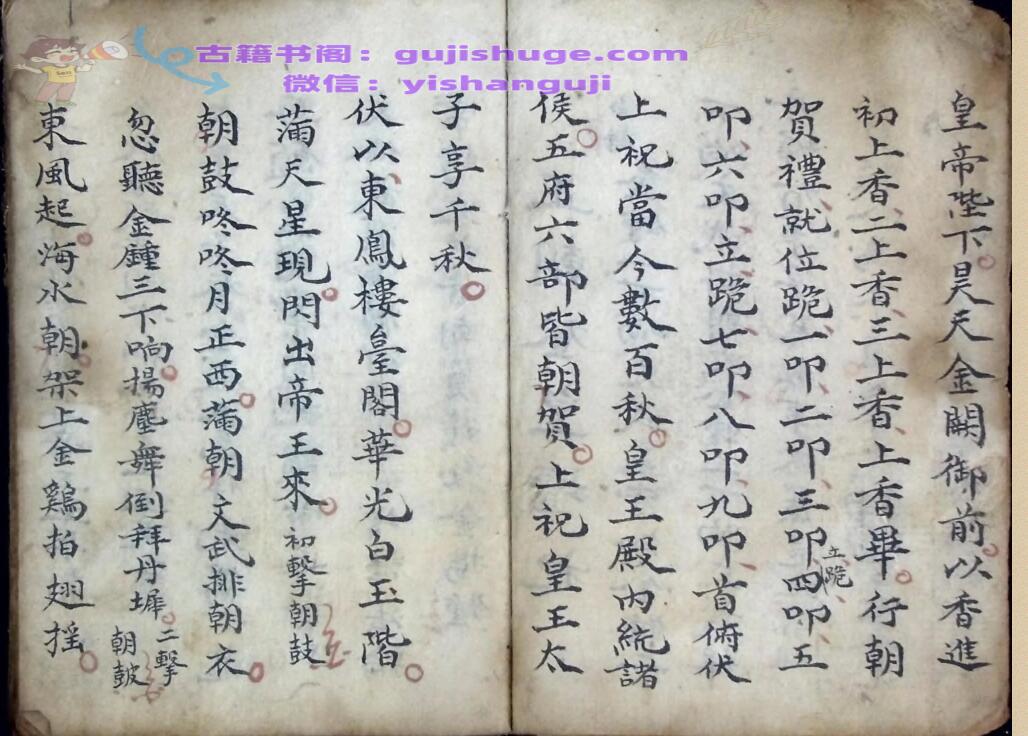 古籍书阁：gujishuge.com
微信：yishanguji
皇帝陛下。昊天金闕御前。以香進
初上香、二上香、三上香、上香畢。行朝
賀禮、就位跪、一叩、二叩、三叩、立跪、四叩、五
叩、六叩、立跪、七叩、八叩、九叩、首俯伏
上祝當今數百秋。皇王殿內統諸
侯。五府六部皆朝賀。上祝皇王太
子享千秋。
伏以、東鳳樓臺閣。華光白玉階。
蒲天星現。閃出帝王來。初擊朝鼓
朝鼓咚咚月正西。蒲朝文武排朝衣。
忽聽金鍾三下响。揚塵舞倒拜丹墀。二擊朝皷
東風起。海水朝。架上金鷄拍翅摇。